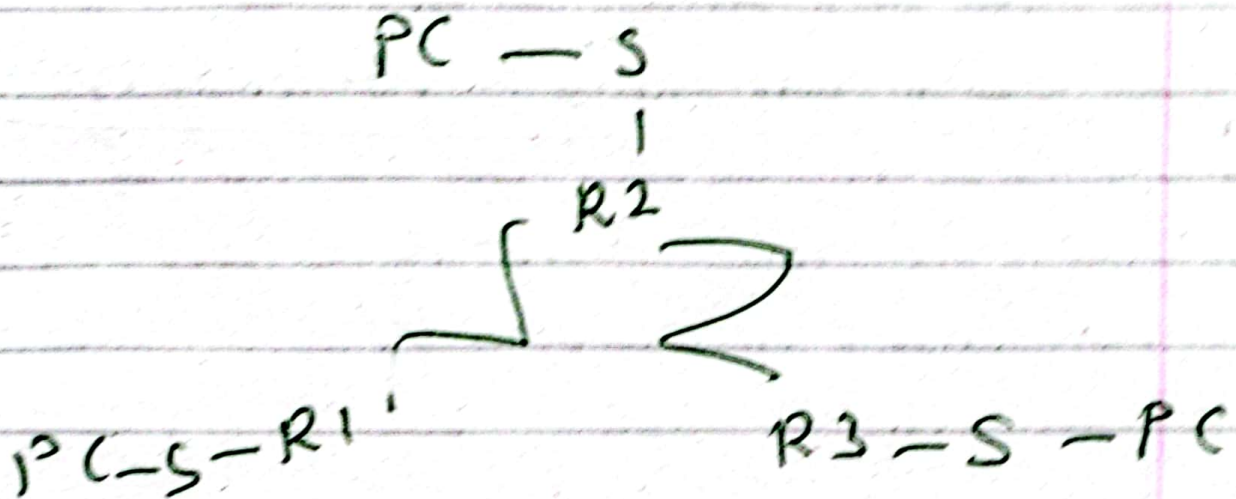 PC - S
R2
PC-S-R1
R3-S-PC